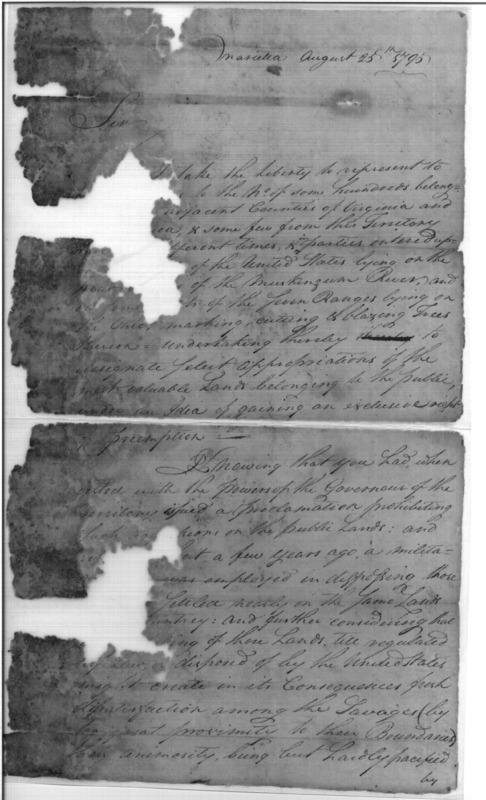 Marietta August 25th 1795
Sir
I take the liberty to represent to
to the No. of some hundreds belong=
adjacent Counties of Virginia and
& some few from this Territory
different times, & parties entered up
of the United States lying on the
of the Muskingum River, and
of the Seven Ranges lying on
the Ohio, marking, cutting & blazing Trees
thereon = undertaking thereby to
designate select appropriations of the
most valuable Lands belonging to the public,
under an Idea of gaining an exclusive right
of preemption =
Knowing that you had, when
vested with the powers of the Governour of the
Territory issued a proclamation prohibiting
on the public Lands: and
a few years ago, a milita=
was employed in dispossing those
settled nearly on the same Lands
country: and further considering that
ing of these Lands, till regulated
disposed of by the United States
might create in its Consequences great
dissatisfaction among the Savages (by
proximity to their Boundaries)
their animosity, being but hardly pacified
by